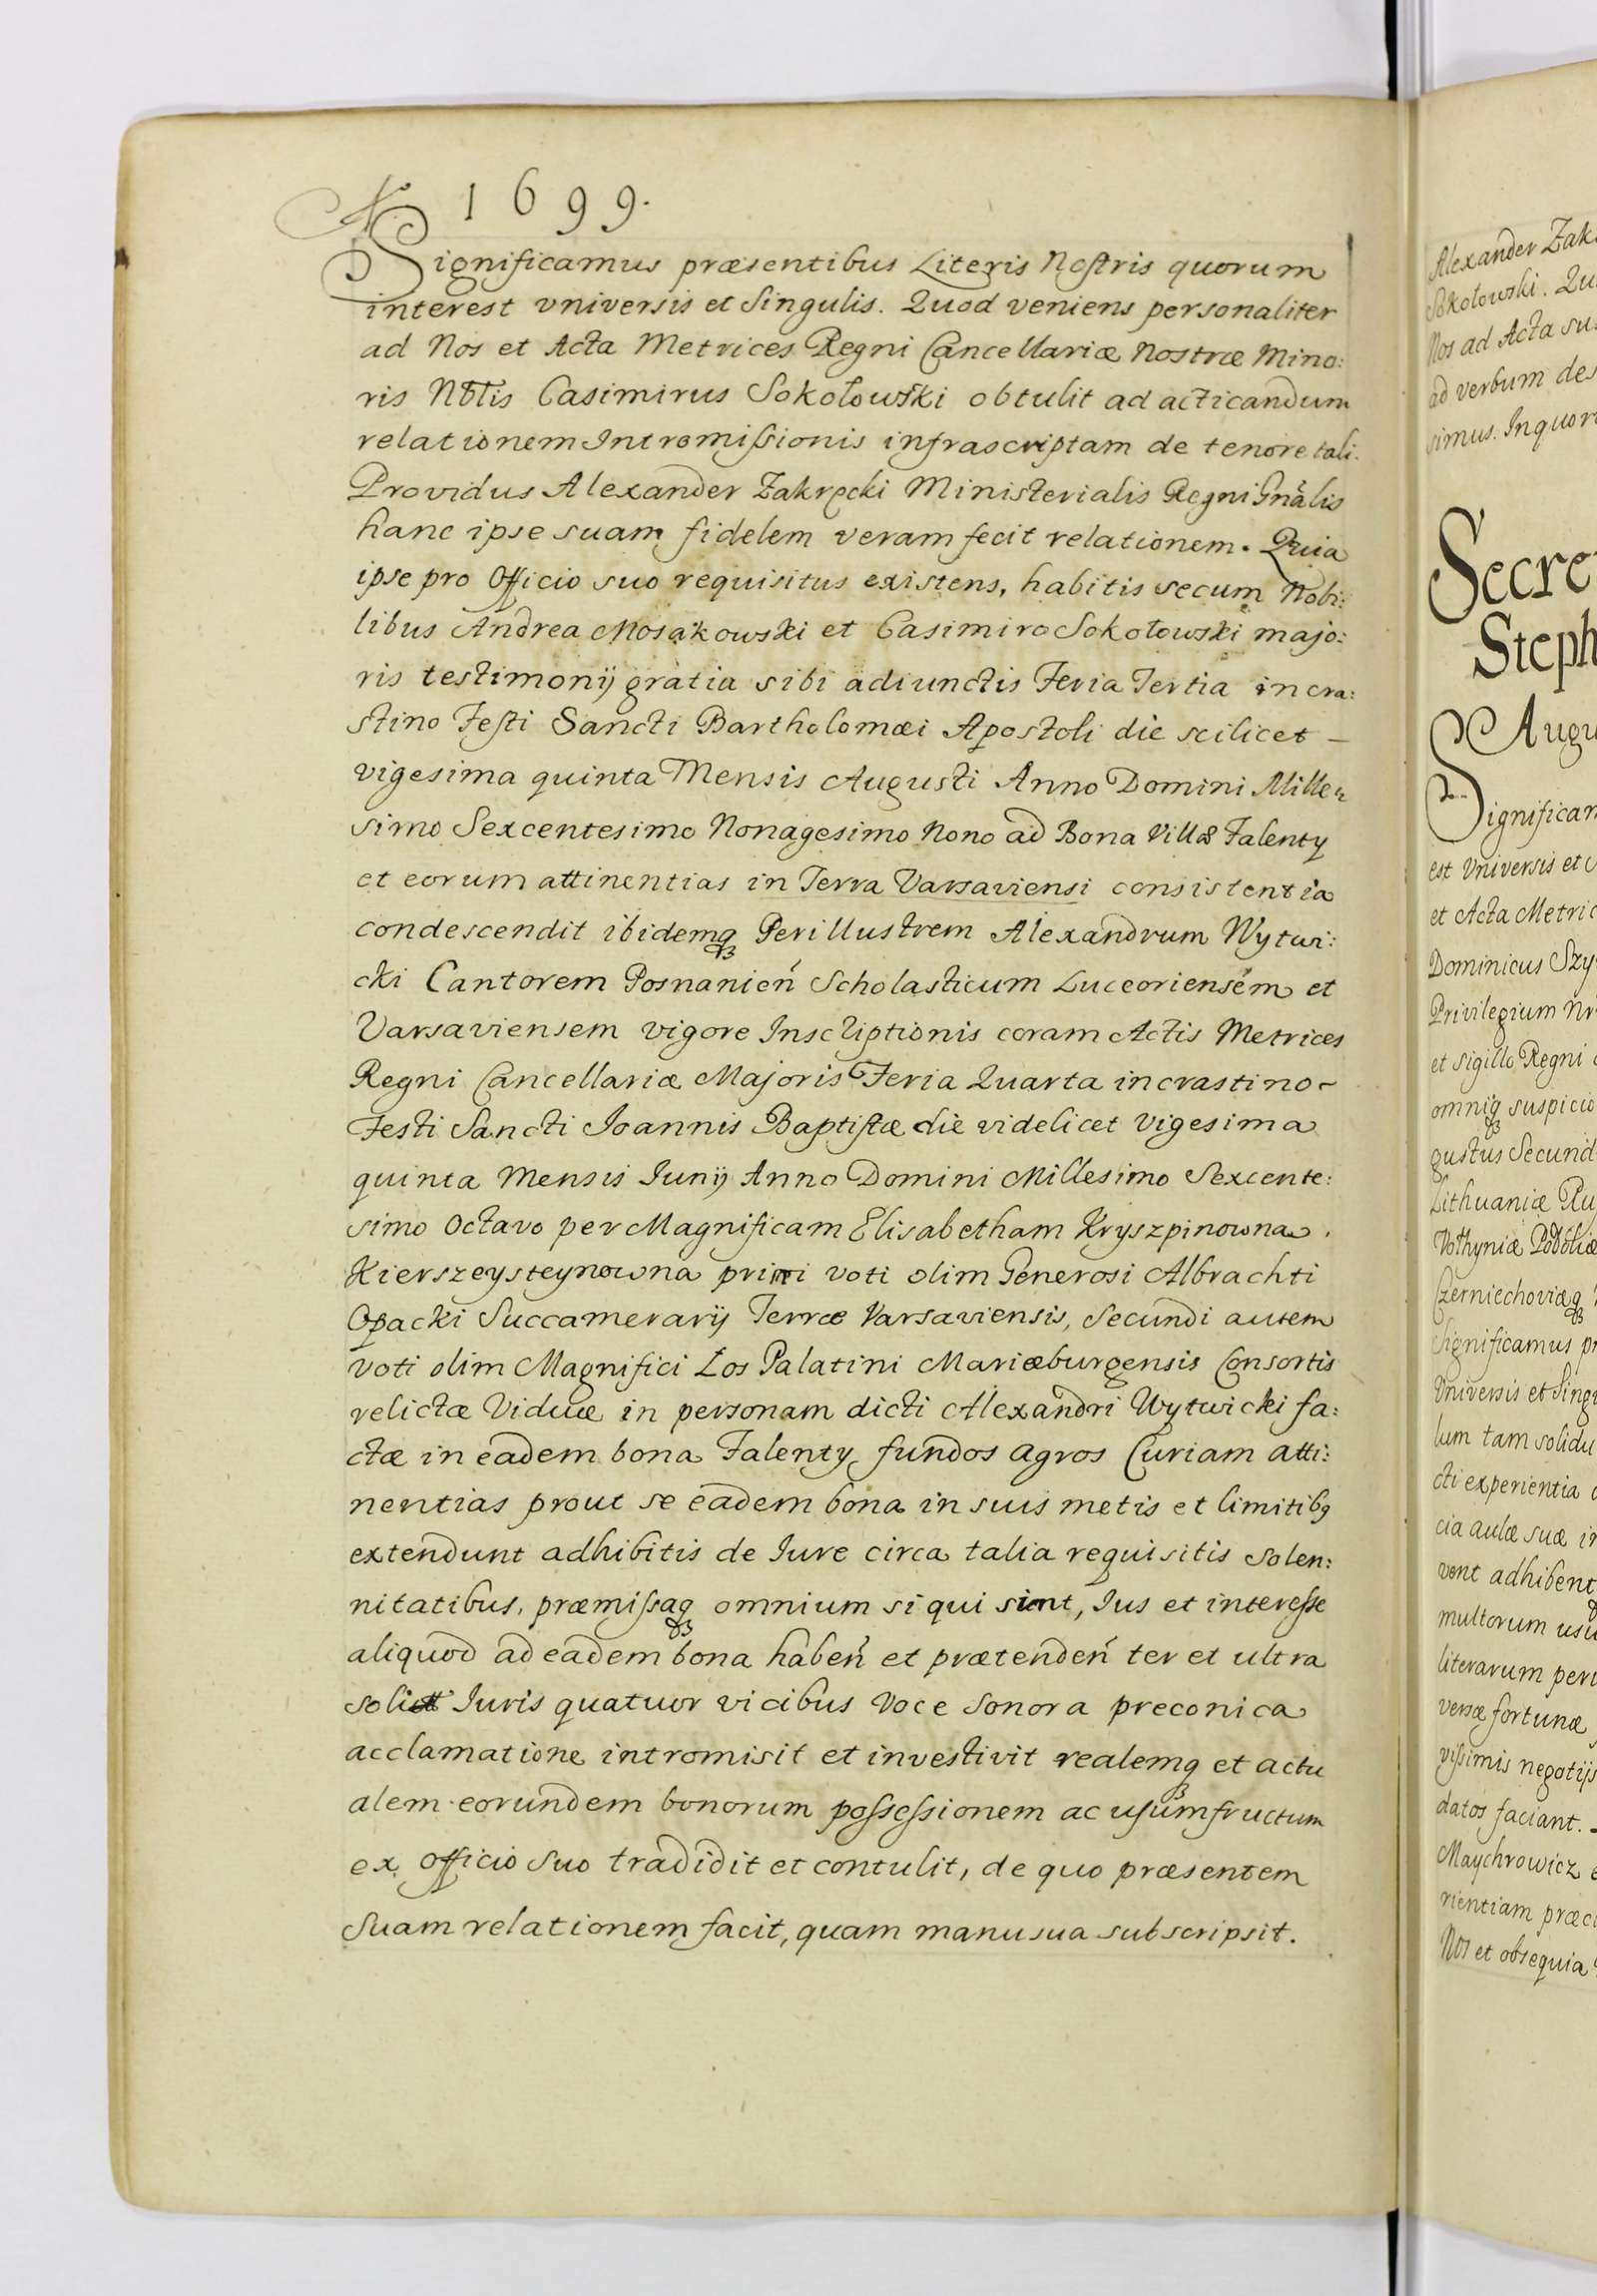 A. 1699.
Significamus præsentibus Literis Nostris quorum
interest vniversis et Singulis. Quod veniens personaliter
ad Nos et Acta Metrices Regni Cancellariæ Nostræ Mino:
ris Nblis Casimirus Sokołowski obtulit ad acticandum
relationem Intromissionis infrascriptam de tenore tali.
Providus Alexander Zakręcki Ministerialis Regni Gnalis
hanc ipse suam fidelem veram fecit relationem. Quia
ipse pro Officio suo requisitus existens, habitis secum Nobi:
libus Andrea Mosakowski et Casimiro Sokołowski majo:
ris testimonij gratia sibi adiunctis Feria Tertia in cra:
stino Festi Sancti Bartholomæi Apostoli die scilicet –
vigesima quinta Mensis Augusti Anno Domini Mille
simo Sexcentesimo Nonagesimo Nono ad Bona Villæ Falenty
et eorum attinentias in Terra Varsaviensi consistentia
condescendit ibidemq3 Perillustrem Alexandrum Wytwi:
cki Cantorem Posnanień Scholasticum Luceoriensem et
Varsaviensem vigore Inscriptionis coram Actis Metrices
Regni Cancellariæ Majoris Feria Quarta in crastino –
Festi Sancti Joannis Baptistæ die videlicet Vigesima
quinta Mensis Junij Anno Domini Millesimo Sexcente:
simo Octavo per Magnificam Elisabetham Kryszpinowna.
Kierszeysteynowna primi voti olim Generosi Albrachti
Opacki Succamerarij Terræ Varsaviensis, Secundi autem
voti olim Magnifici Łos Palatini Mariæburgensis Consortis
relictæ Viduæ in personam dicti Alexandri Wytwicki fa:
ctæ in eadem bona Falenty fundos agros Curiam atti:
nentias prout se eadem bona in suis metis et limitibq
extendunt adhibitis de Jure circa talia requisitis solen:
nitatibus, præmissaq3 omnium si qui sient, Jus et interesse
aliquod ad eadem bona habeń et prætendeń ter et ultra
Juris quatuor vicibus voce sonora preconica
acclamatione intromisit et investivit realemq3 et actu
alem eorundem bonorum possessionem ac usumfructum
ex Officio suo tradidit et contulit, de quo præsentem
Suam relationem facit, quam manu sua subscripsit.
Alexander Zak
Sokołowski. Qu
Nos ad Acta su
ad verbum des
simus. In quor
Secre
Steph
Augu
Significam
est Vniversis et
et Acta Metric
Dominicus Szy
Privilegium Nr
et sigillo Regni
omniq3 suspicio
gustus Secund
Lithuaniæ Ru
Volhyniæ Podoliæ
Czerniechoviæq3
Significamus pr
Vniversis et Sing
lum tam solidu
cti experientia
cia aulæ suæ in
vent adhibent
multorum usu
literarum peri
versæ fortunæ
vissimis negotijs
datos faciant.
Maychrowicz
rientiam præci
Nos et obsequia